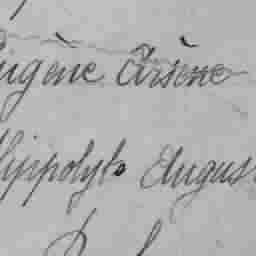 ugène Arsène
Hippolyte Augus